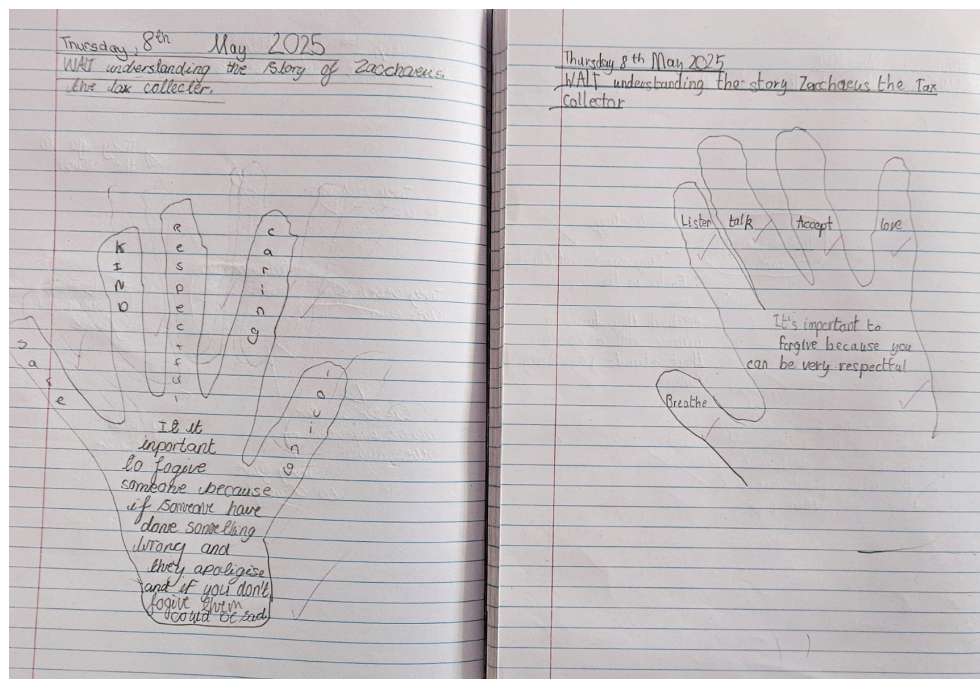 Thursday, 8th May 2025
WALT understanding the story of Zacchaeus
the tax collecter.
safe
KIND
Respectful
caring
loving
It it
inportant
to fogive
someone because
if someone have
done something
wrong and
they apoligise
and if you don't
fogive them
could be sad
Thursday 8th May 2025
WALT understanding the story Zacchaeus the Tax
Collector
Listen
talk
Accept
love
Breathe
It's important to
forgive because you
can be very respectful